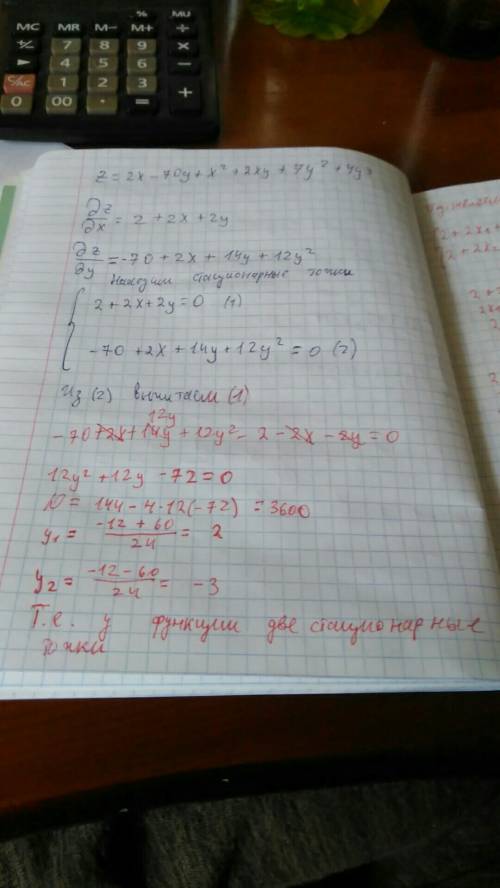 % MU
MC MR M− M+ ÷
+/− 7 8 9 ×
► 4 5 6 −
C/AC 1 2 3 +
0 00 · =
z = 2x − 70y + x² + 2xy + 7y² + 4y³
∂z/∂x = 2 + 2x + 2y
∂z/∂y = −70 + 2x + 14y + 12y²
Находим стационарные точки
{ 2 + 2x + 2y = 0 (1)
−70 + 2x + 14y + 12y² = 0 (2)
Из (2) вычитаем (1)
12y
−70 + 2x + 14y + 12y² − 2 − 2x − 2y = 0
12y² + 12y − 72 = 0
D = 144 − 4·12(−72) = 3600
y₁ = (−12 + 60)/24 = 2
y₂ = (−12 − 60)/24 = −3
Т.е. у функции две стационарные
точки